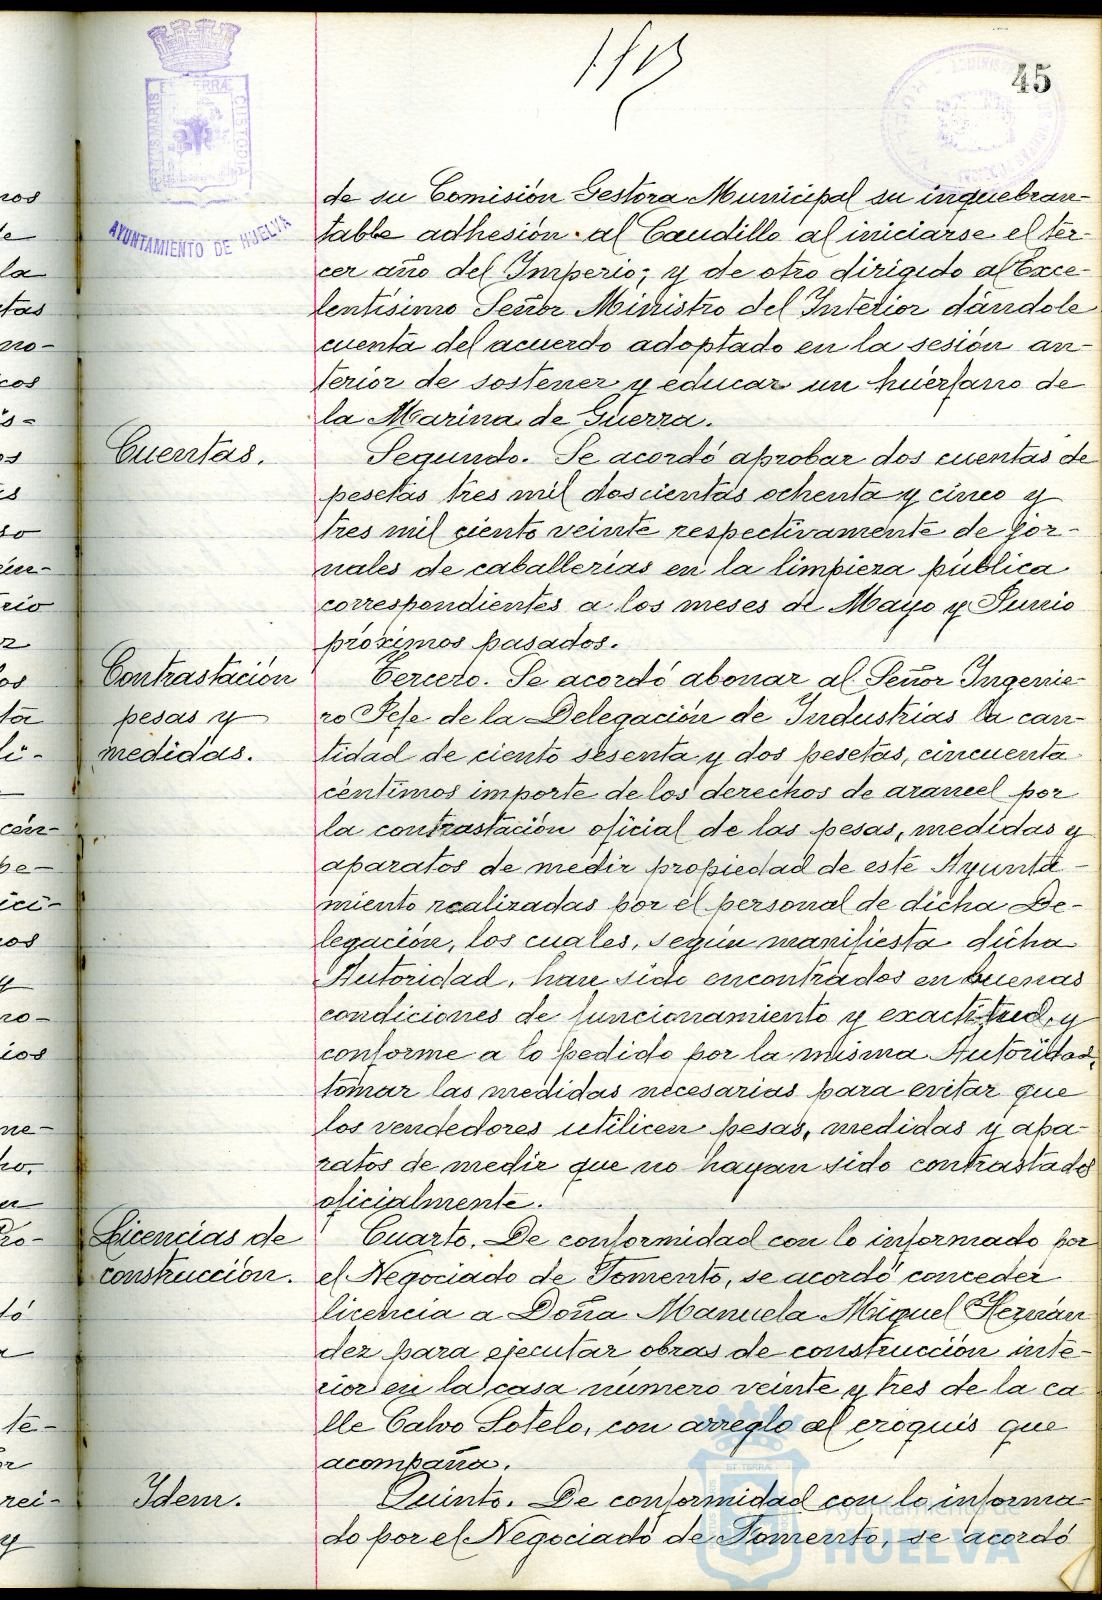 45
AYUNTAMIENTO DE HUELVA
de su Comisión Gestora Municipal su inquebran-
table adhesión al Caudillo al iniciarse el ter-
cer año del Imperio; y de otro dirigido al Exce-
lentísimo Señor Ministro del Interior dándole
cuenta del acuerdo adoptado en la sesión an-
terior de sostener y educar un huérfano de
la Marina de Guerra.
Cuentas.
Segundo. Se acordó aprobar dos cuentas de
pesetas tres mil doscientas ochenta y cinco y
tres mil ciento veinte respectivamente de jor-
nales de caballerías en la limpieza pública
correspondientes a los meses de Mayo y Junio
próximos pasados.
Contrastación
pesas y
medidas.
Tercero. Se acordó abonar al Señor Ingenie-
ro Jefe de la Delegación de Industrias la can-
tidad de ciento sesenta y dos pesetas, cincuenta
céntimos importe de los derechos de arancel por
la contrastación oficial de las pesas, medidas y
aparatos de medir propiedad de este Ayunta-
miento realizadas por el personal de dicha De-
legación, los cuales, según manifiesta dicha
Autoridad, han sido encontrados en buenas
condiciones de funcionamiento y exactitud, y
conforme a lo pedido por la misma Autoridad,
tomar las medidas necesarias para evitar que
los vendedores utilicen pesas, medidas y apa-
ratos de medir que no hayan sido contrastados
oficialmente.
Licencias de
construcción.
Cuarto. De conformidad con lo informado por
el Negociado de Fomento, se acordó conceder
licencia a Doña Manuela Miquel Hernán
dez para ejecutar obras de construcción inte-
rior en la casa número veinte y tres de la ca
lle Calvo Sotelo, con arreglo al croquis que
acompaña.
Idem.
Quinto. De conformidad con lo informa-
do por el Negociado de Fomento, se acordó
Ayuntamiento de
HUELVA